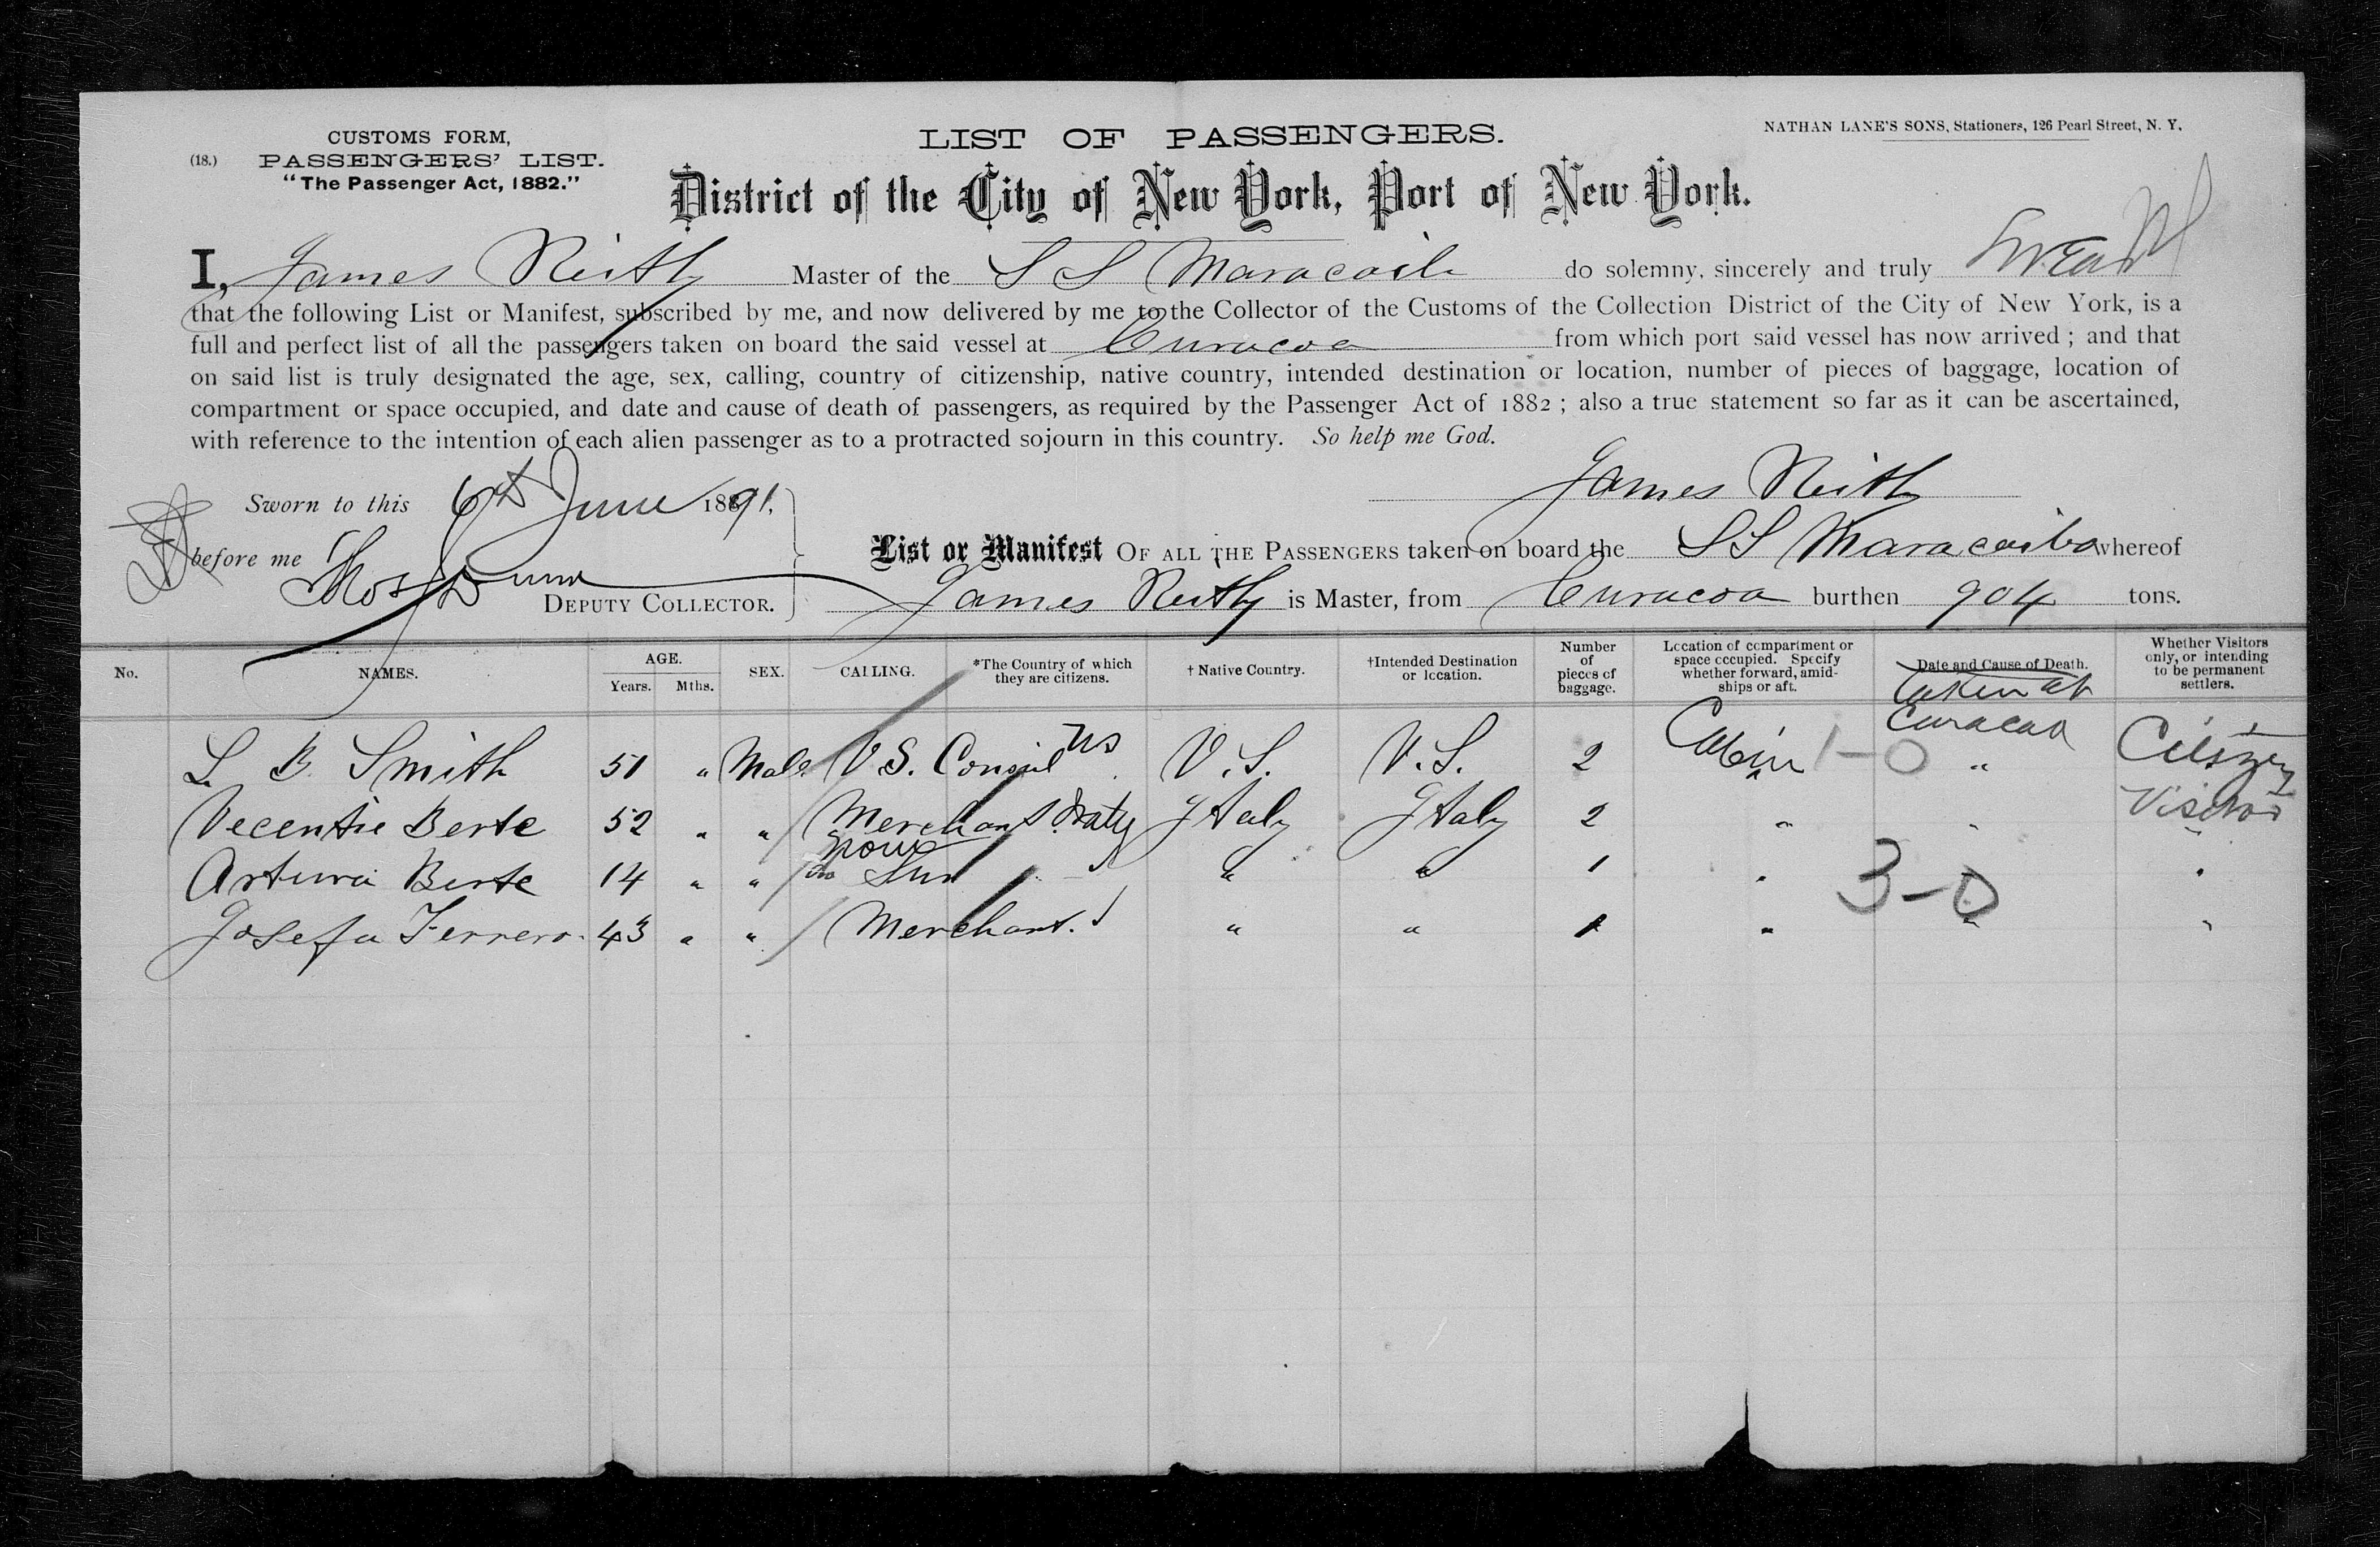 CUSTOMS FORM,
(18.) PASSENGERS' LIST.
"The Passenger Act, 1882."
LIST OF PASSENGERS.
NATHAN LANE'S SONS, Stationers, 126 Pearl Street, N. Y.
District of the City of New York, Port of New York.
I, James Master of the S S Maracaibo do solemny, sincerely and truly swear
that the following List or Manifest, subscribed by me, and now delivered by me to the Collector of the Customs of the Collection District of the City of New York, is a
full and perfect list of all the passengers taken on board the said vessel at Curacoa from which port said vessel has now arrived ; and that
on said list is truly designated the age, sex, calling, country of citizenship, native country, intended destination or location, number of pieces of baggage, location of
compartment or space occupied, and date and cause of death of passengers, as required by the Passenger Act of 1882 ; also a true statement so far as it can be ascertained,
with reference to the intention of each alien passenger as to a protracted sojourn in this country. So help me God.
James
Sworn to this 6th June 1891,
before me Thos Dunn
DEPUTY COLLECTOR.
List or Manifest OF ALL THE PASSENGERS taken on board the S S Maracaibo whereof
James is Master, from Curacoa burthen 904 tons.
No. NAMES. AGE. Years. Mths. SEX. CALLING. *The Country of which they are citizens. † Native Country. †Intended Destination or location. Number of pieces of baggage. Location of compartment or space occupied. Specify whether forward, amid-ships or aft. Date and Cause of Death. Whether Visitors only, or intending to be permanent settlers.
Taken at
Curacao
L. B. Smith 51 " Male U.S. Consul US U.S. U.S. 2 Cabin 1-0 " Citizen
Vecentie Berte 52 " " Merchant Italy Italy Italy 2 " " Visitor
Arturo Berte 14 " " " " 1 " 3-0 "
Josefa Ferrero 43 " " Merchant. " " 1 " " "